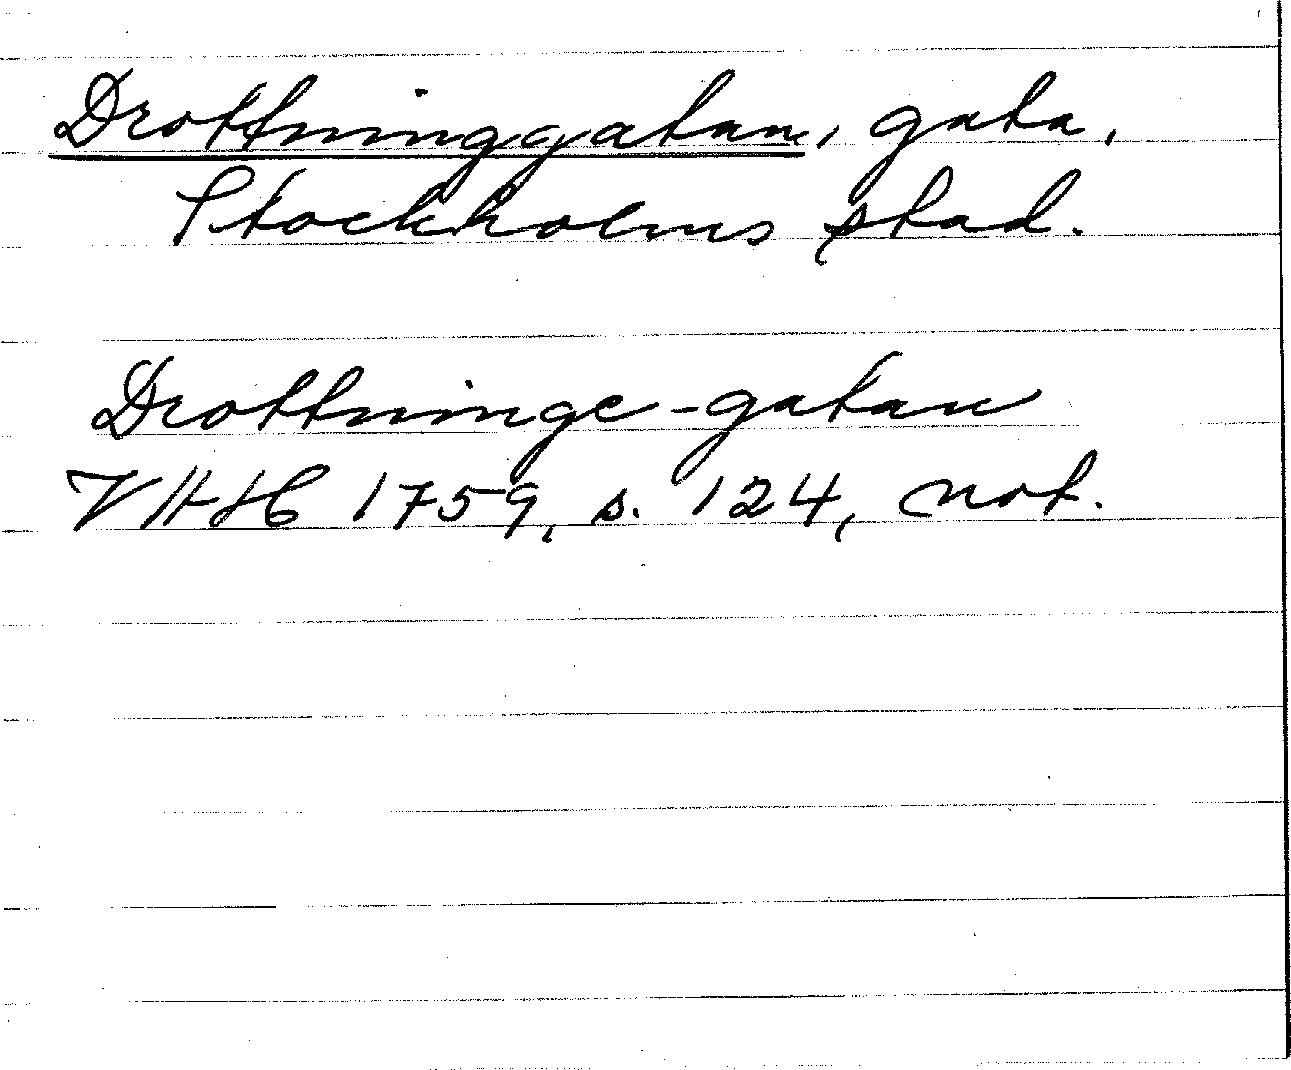 Drottninggatan, gata,
Stockholms stad.
Drottninge-gatan
VHH 1759, s. 124, not.